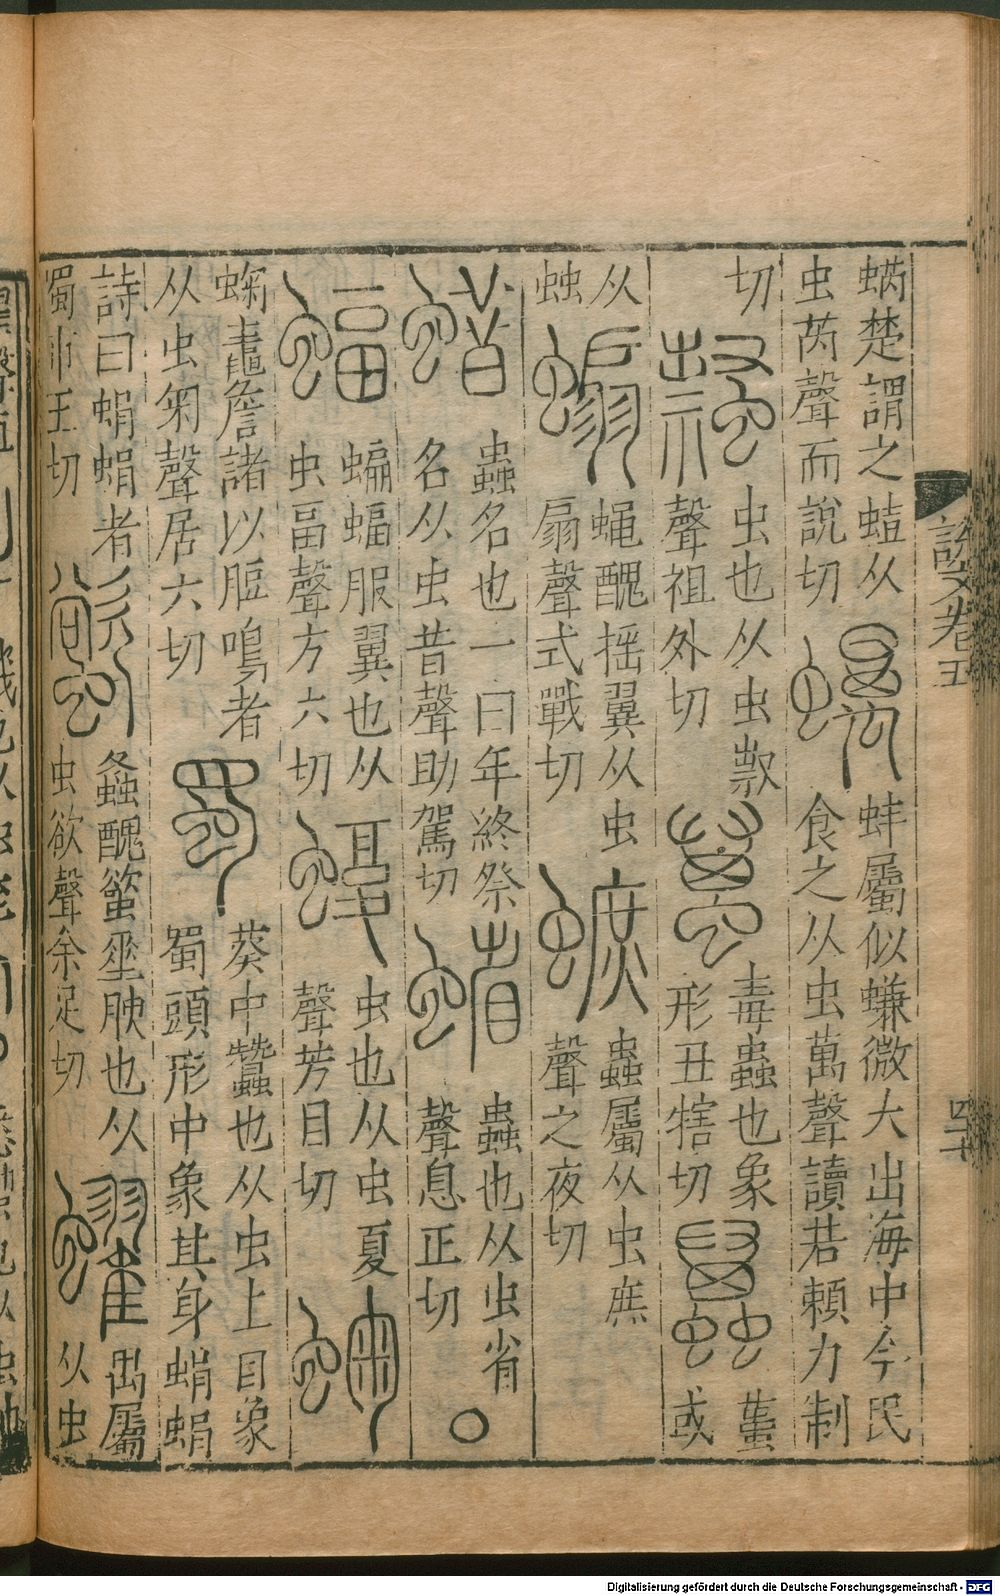 說文卷五
四十
螨楚謂之蜡从 蠇 蚌屬似蠊微大出海中今民
虫芮聲而說切 食之从虫萬聲讀若賴力制
切 虫也从虫 蠆 毒蟲也象 蠆 蠆
聲祖外切 形丑犗切 或
从 蝙 蝇醜搖翼从虫 蟅 蟲屬从虫庶
䖵 扇聲式戰切 聲之夜切
蜡 蟲名也一曰年終祭 蝔 蟲也从虫省
名从虫昔聲助駕切 聲息正切 ○
蝠 蝙蝠服翼也从 蝮 虫也从虫夏
虫畐聲方六切 聲芳目切
鼀詹諸以脰鳴者 蜀 葵中蠶也从虫上目象
从虫匊聲居六切 蜀頭形中象其身蜎蜎
詩曰蜎蜎者 螸 螽醜螸垂腴也从 蠗 禺屬
蜀市玉切 虫欲聲余足切 从虫